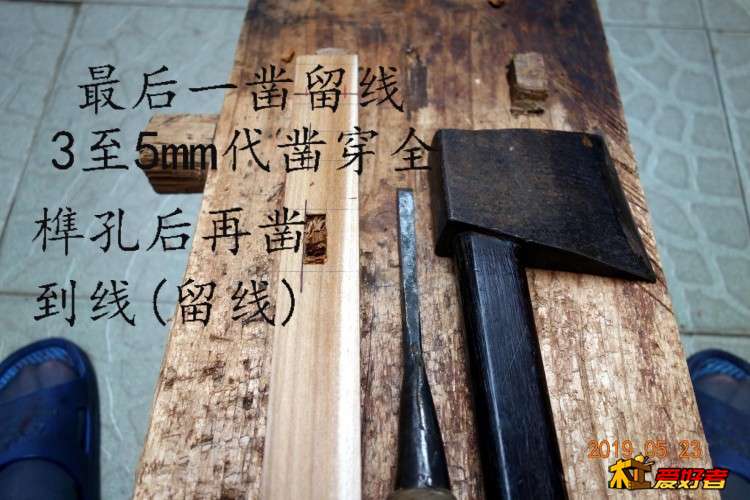 最后一凿留线
3至5mm代凿穿全
榫孔后再凿
到线(留线)
2019 05 23
木工爱好者